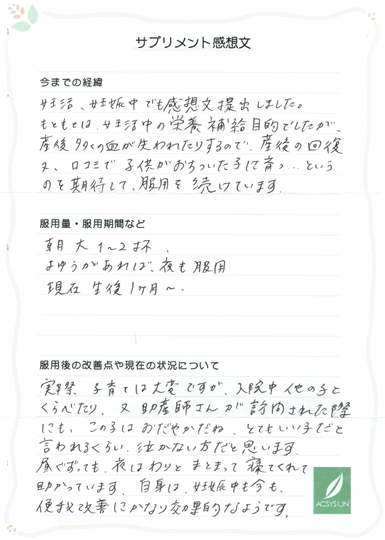 サプリメント感想文
今までの経緯
妊活、妊娠中でも感想文提出しました。
もともとは、妊活中の栄養補給目的でしたが、
産後多くの血が失われたりするので、産後の回復
又、口コミで子供がおちついた子に育つ…という
のを期待して、服用を続けています。
服用量・服用期間など
朝 大1~2杯、
よゆうがあれば、夜も服用
現在 生後1ヶ月~.
服用後の改善点や現在の状況について
実際、子育ては大変ですが、入院中他の子と
くらべたり、又助産師さんが訪問された際
にも、この子はおだやかだね、とてもいい子だと
言われるくらい、泣かない方だと思います。
昼ぐずっても、夜はわりとまとまって寝てくれて
助かっています。自身は、妊娠中も今も、
便秘改善にかなり効果的なようです。
ACSYS UN